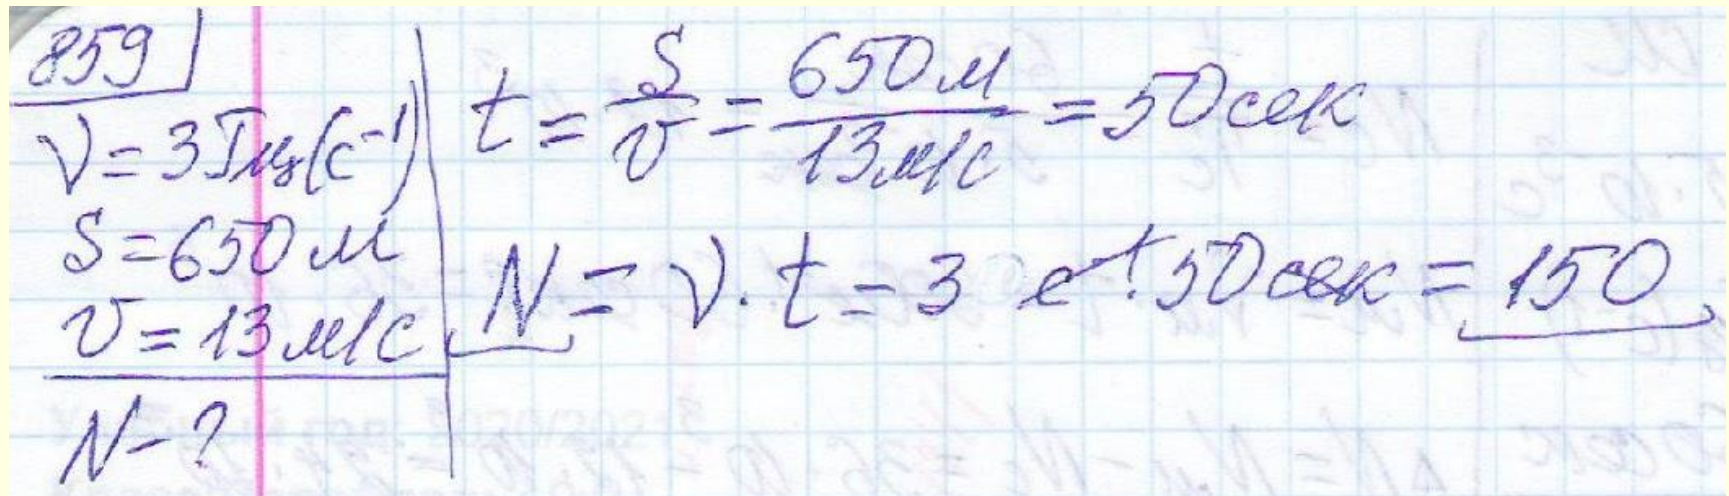 859
ν = 3 Гц (с⁻¹)
S = 650 м
v = 13 м/с
N - ?
t = S/v = 650 м / 13 м/с = 50 сек
N = ν · t = 3 с⁻¹ · 50 сек = 150